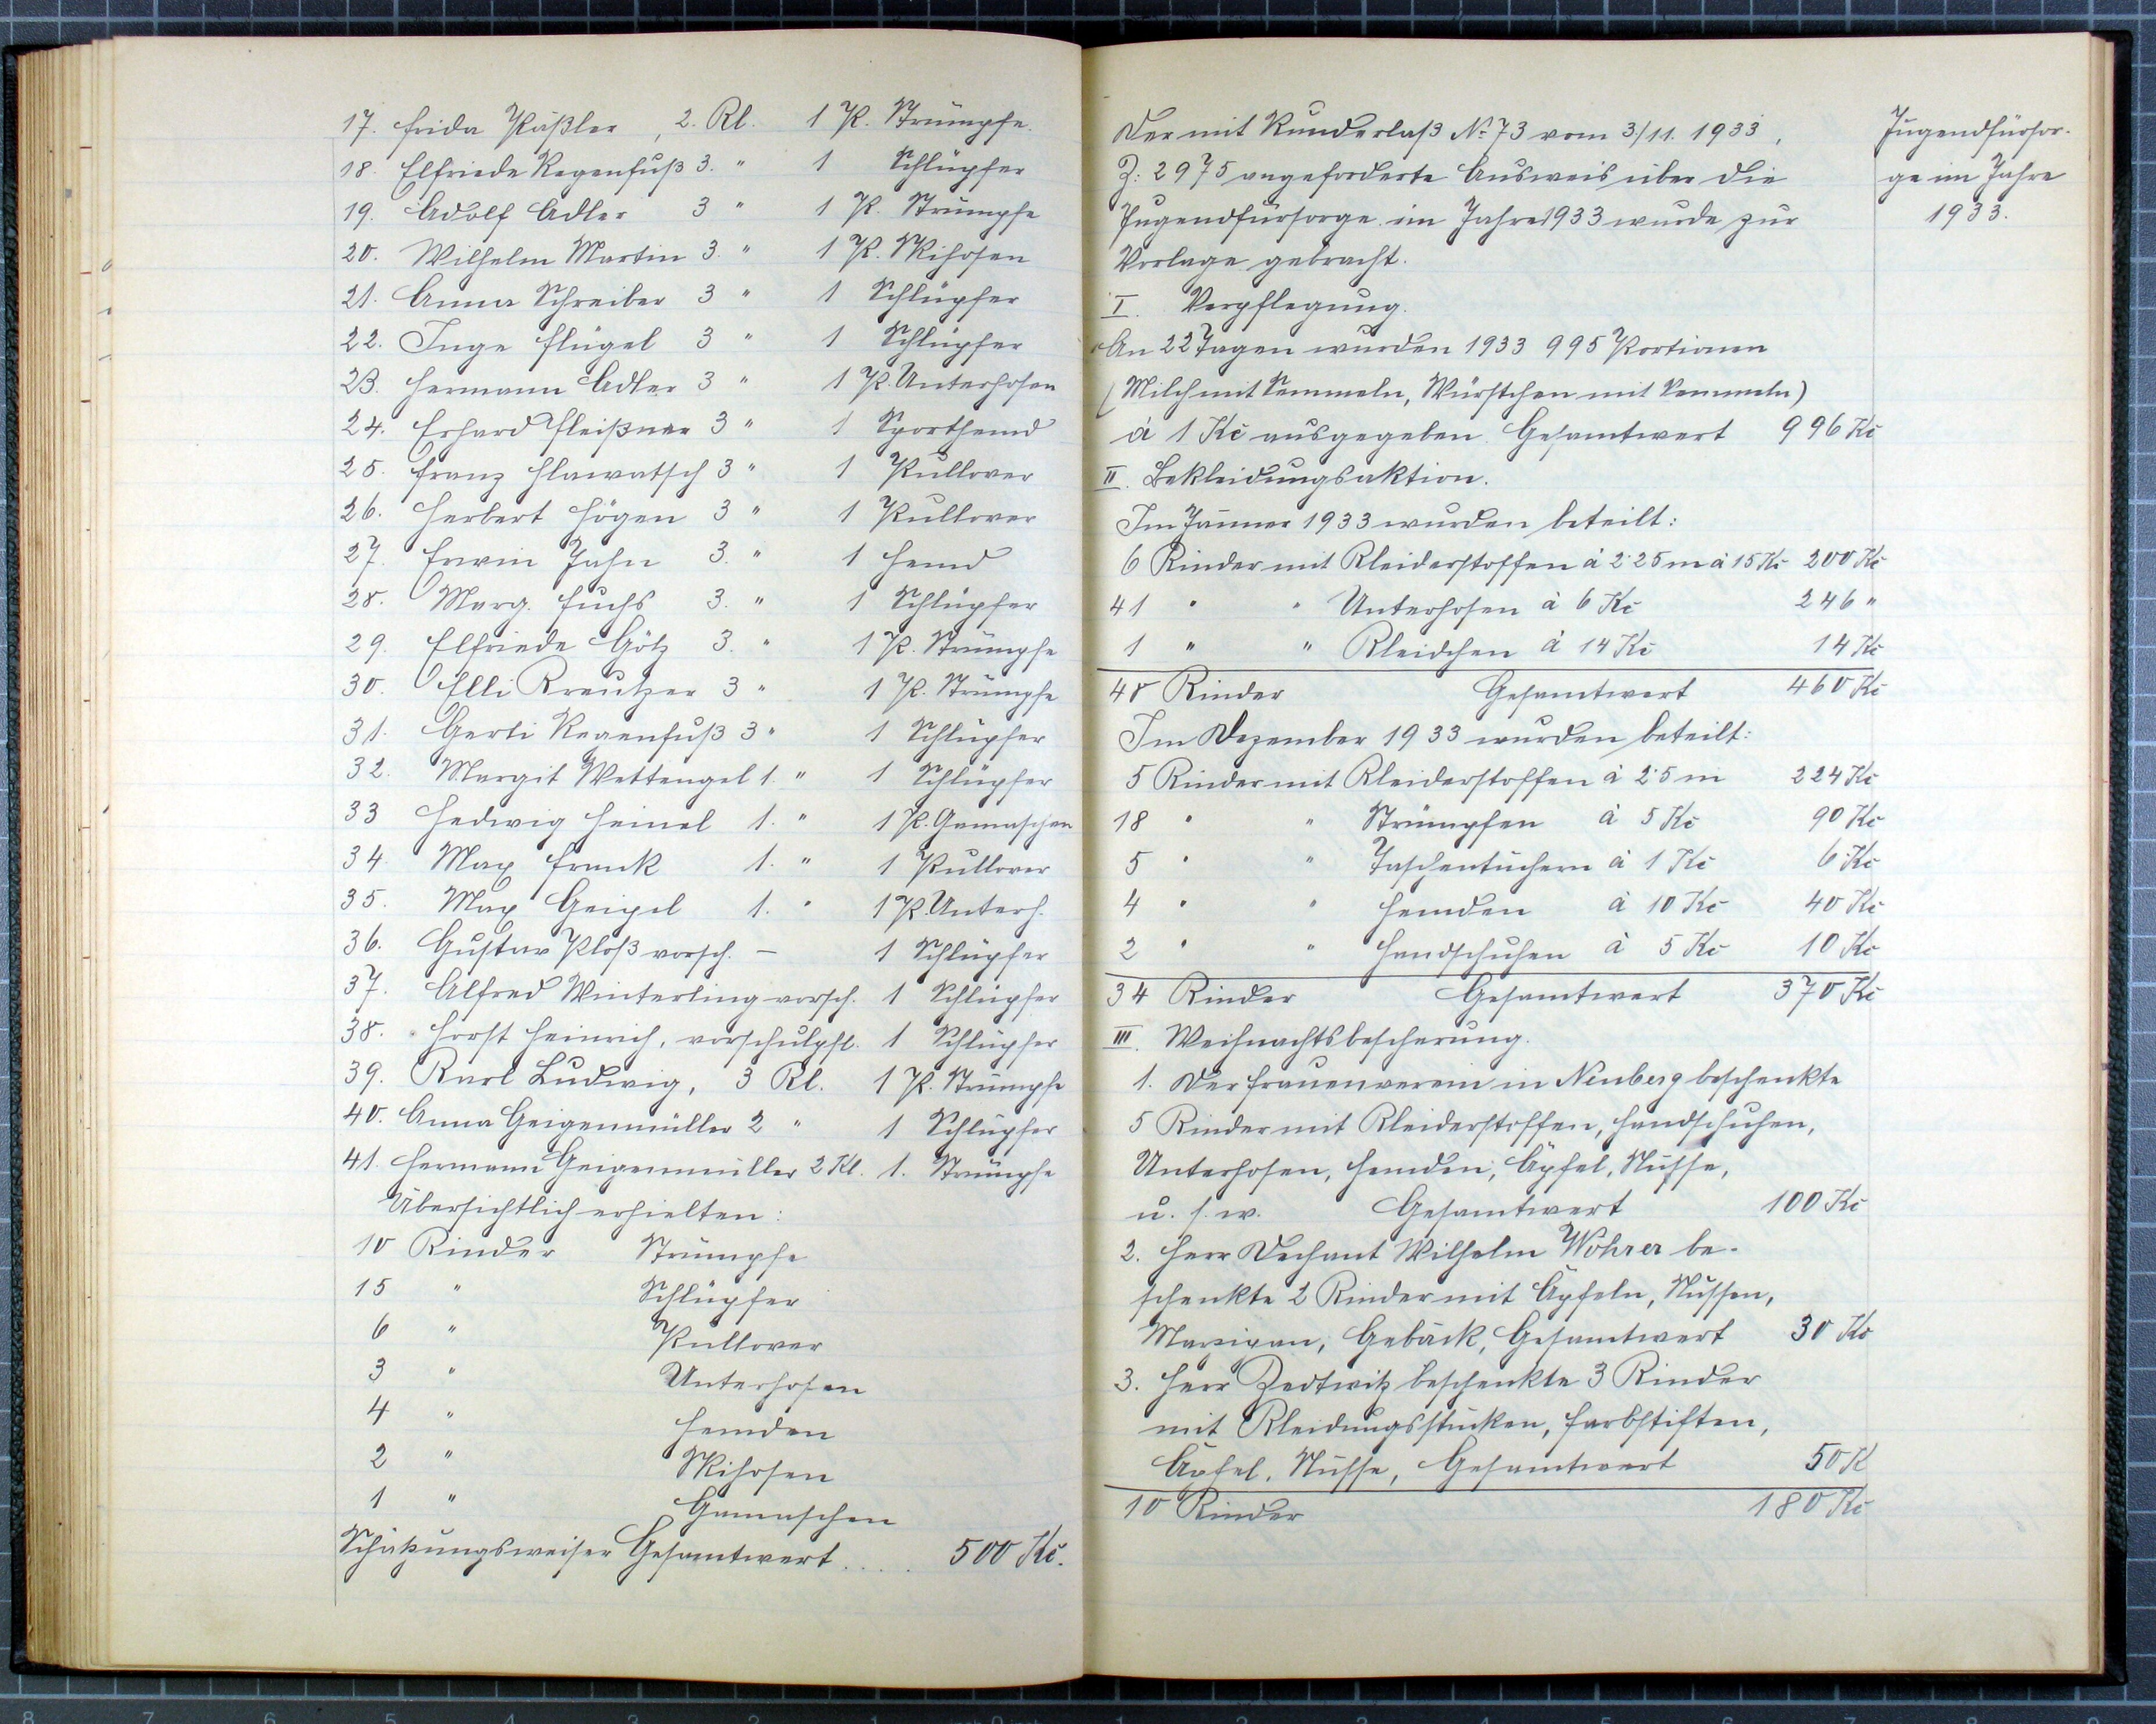 17. Frida Päßler, 2. Kl. 1 P. Strümpfe.
18. Elfriede Regenfuß 3. " 1 Schlüpfer
19. Adolf Adler 3 " 1 P. Strümpfe
20. Wilhelm Martin 3. " 1 P. Skihosen
21. Anna Schreiber 3 " 1 Schlüpfer
22. Inge Flügel 3 " 1 Schlüpfer
23. Hermann Adler 3 " 1 P. Unterhosen
24. Erhard Fleißner 3 " 1 Sporthemd
25. Franz Hlawatsch 3 " 1 Pullover
26. Herbert Högen 3 " 1 Pullover
27. Erwin Jahn 3. " 1 Hemd
28. Marg. Fuchs 3. " 1 Schlüpfer
29. Elfriede Götz 3. " 1 P. Strümpfe
30. Elli Kreutzer 3 " 1 P. Strümpfe
31. Gerti Regenfuß 3 " 1 Schlüpfer
32. Margit Wettengel 1. " 1 Schlüpfer
33 Hedwig Heinel 1. " 1 P. Gamaschen
34 Max Frank 1. " 1 Pullover
35. Max Geipel 1. " 1 P. Unterh.
36. Gustav Ploß vorsch. — 1 Schlüpfer
37. Alfred Winterling vorsch. 1 Schlüpfer
38. Horst Heinrich, vorschulpfl. 1 Schlüpfer
39. Karl Ludwig, 3 Kl. 1 P. Strümpfe
40. Anna Geigenmüller 2 " 1 Schlüpfer
41. Hermann Geigenmüller 2 Kl. 1. Strümpfe
Übersichtlich erhielten:
10 Kinder Strümpfe
15 " Schlüpfer
6 " Pullover
3 " Unterhosen
4 " Hemden
2 " Skihosen
1 " Gamaschen
Schätzungsweiser Gesamtwert ..... 500 Kč.
Der mit Runderlaß No 73 vom 3./11. 1933,
Z: 2975 angeforderte Ausweis über die
Jugendfürsorge im Jahre 1933 wurde zur
Vorlage gebracht.
Jugendfürsor-
ge im Jahre
1933.
I. Verpflegung.
An 22 Tagen wurden 1933 995 Portionen
(Milch mit Semmeln, Würstchen mit Semmeln)
à 1 Kč ausgegeben. Gesamtwert 996 Kč
II. Bekleidungsaktion.
Im Jänner 1933 wurden beteilt:
6 Kinder mit Kleiderstoffen à 2·25 m à 15 Kč 200 Kč
41 " " Unterhosen à 6 Kč 246 "
1 " " Kleidchen à 14 Kč 14 Kč
48 Kinder Gesamtwert 460 Kč
Im Dezember 1933 wurden beteilt:
5 Kinder mit Kleiderstoffen à 2·5 m 224 Kč
18 " " Strümpfen à 5 Kč 90 Kč
5 " " Taschentüchern à 1 Kč 6 Kč
4 " " Hemden à 10 Kč 40 Kč
2 " " Handschuhen à 5 Kč 10 Kč
34 Kinder Gesamtwert 370 Kč
III. Weihnachtsbescherung.
1. Der Frauenverein in Neuberg beschenkte
5 Kinder mit Kleiderstoffen, Handschuhen,
Unterhosen, Hemden, Äpfel, Nüsse,
u. s. w. Gesamtwert 100 Kč
2. Herr Dechant Wilhelm Wöhrer be-
schenkte 2 Kinder mit Äpfeln, Nüssen,
Marzipan, Gebäck, Gesamtwert 30 Kč
3. Herr Zedtwitz beschenkte 3 Kinder
mit Kleidungsstücken, Farbstiften,
Äpfel, Nüsse, Gesamtwert 50 K
10 Kinder 180 Kč